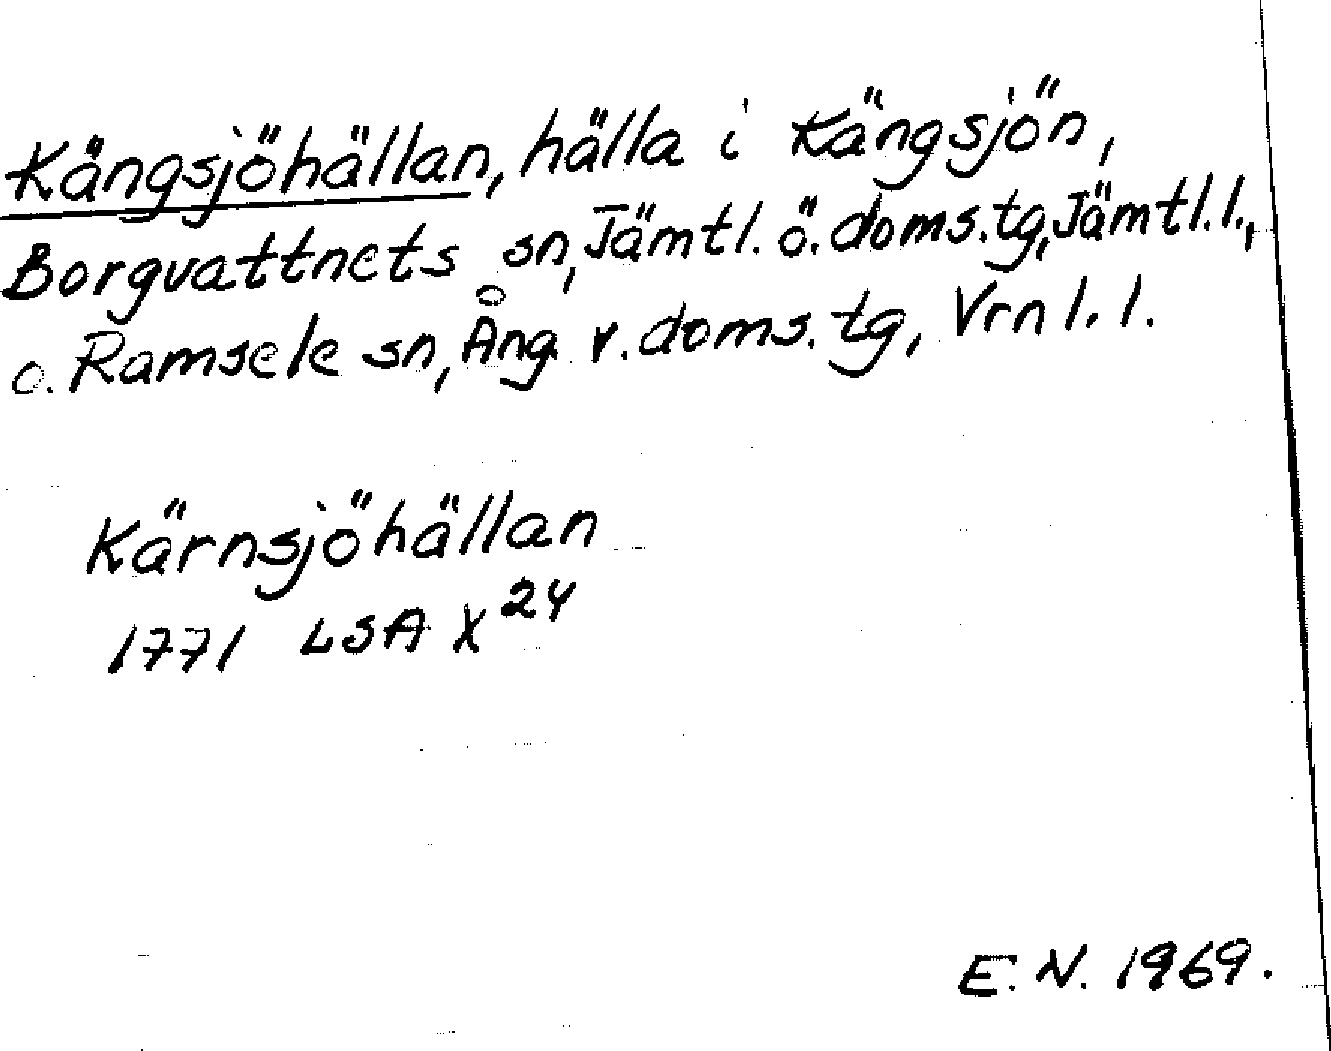 Kängsjöhällan, hälla i Kängsjön,
Borgvattnets sn, Jämtl. ö. doms.tg, Jämtl.l.,
o. Ramsele sn, Ång. v. doms. tg, Vrnl. l.
Kärnsjöhällan
1771 LSA X 24
E. N. 1969.